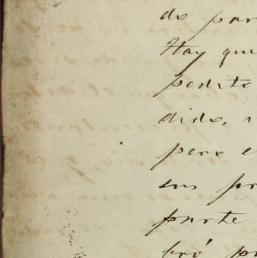 do par
Hay que
pedite
dido, 
pero e
sus pr
parte
tró p